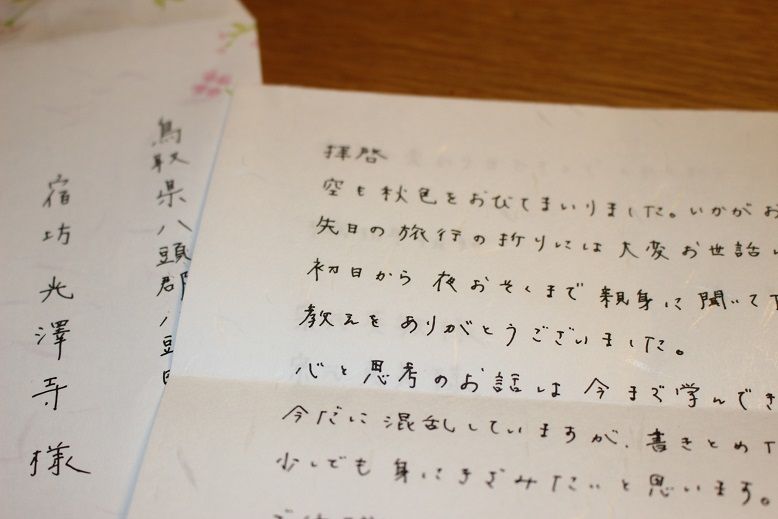 鳥取県八頭郡八頭
宿坊 光澤寺 様
拝啓
空も秋色をおびてまいりました。いかがお
先日の旅行の折りには大変お世話
初日から夜おそくまで親身に聞いて
教えをありがとうございました。
心と思考のお話は今まで学んでき
今だに混乱していますが、書きとめ
少しでも身にきざみたいと思います。